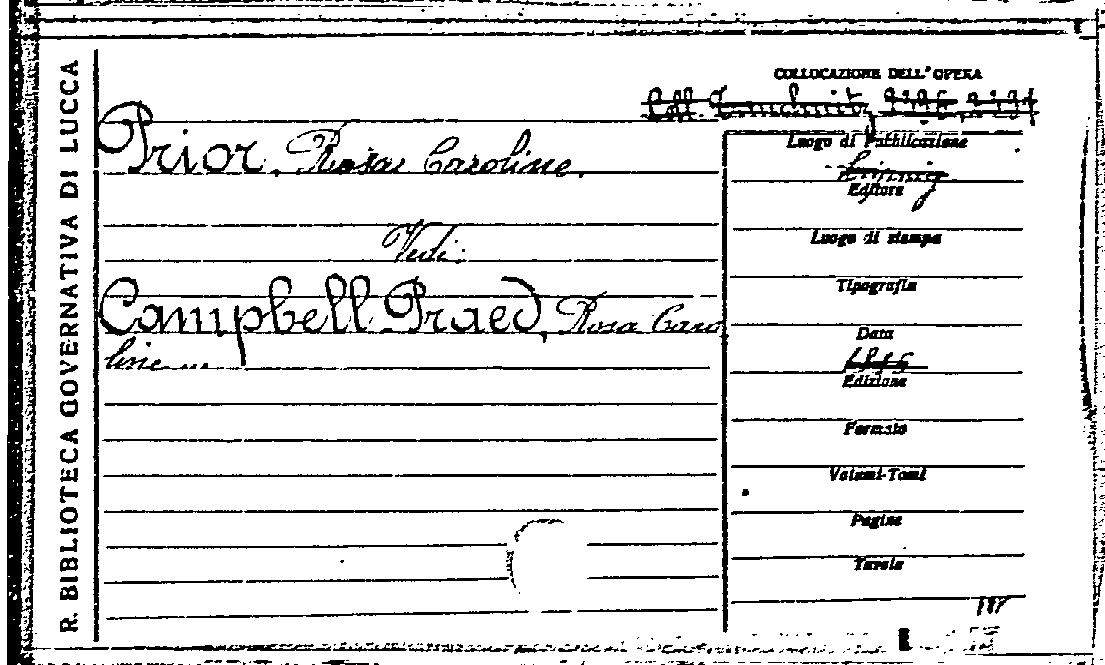 R. BIBLIOTECA GOVERNATIVA DI LUCCA
Prior, Rosa Caroline.
Vedi:
Campbell Praed, Rosa Caro
line
COLLOCAZIONE DELL'OPERA
Coll. Tauchnitz
Luogo di Pubblicazione
Editore
Luogo di stampa
Tipografia
Data
Edizione
Formato
Volumi-Tomi
Pagine
Tavole